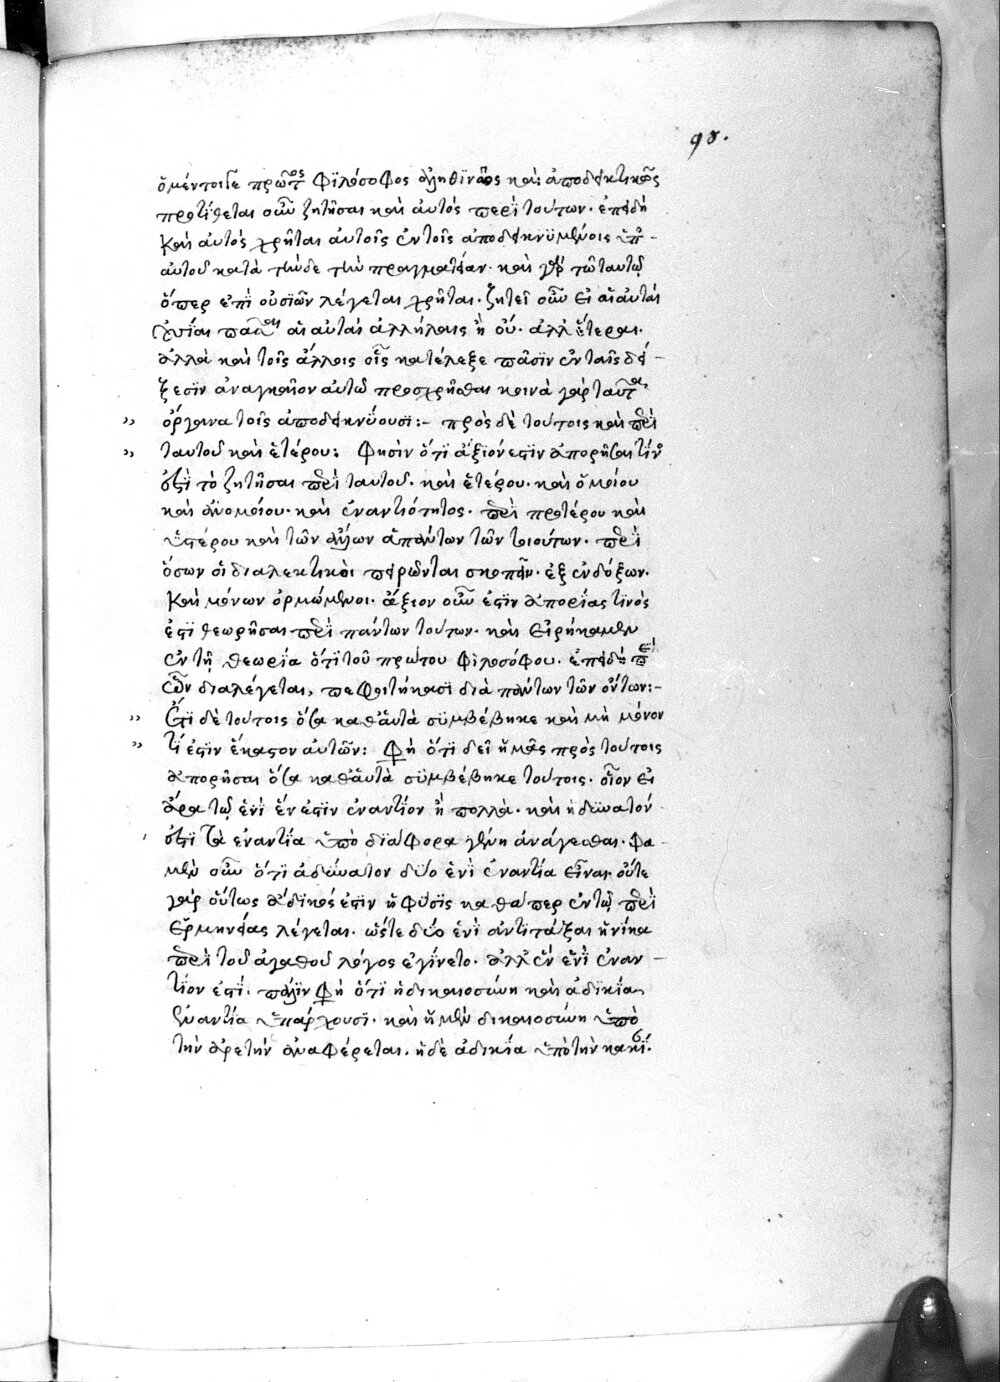 98.
ὁ μέντοιγε πρῶτος φϊλόσοφος ἀληθϊνῶς καὶ ἀποδεικτικῶς
προτίθεται οὖν ζητῆσαι καὶ αὐτὸς περὶ τούτων· ἐπειδὴ
καὶ αὐτὸς χρῆται αὐτοῖς ἐν τοῖς ἀποδεικνϋμένοις ὑπ᾽
αὐτοῦ κατὰ τήνδε τὴν πραγματείαν· καὶ γὰρ τῶ ταυτῷ
ὅπερ ἐπὶ οὐσϊῶν λέγεται χρῆται· ζητεῖ οὖν εἰ αἱ αὐταὶ
οὐσίαι πᾶσαι αἱ αὐταὶ ἀλλήλαις ἢ οὔ· ἀλλ᾽ ἕτεραι·
ἀλλὰ καὶ τοῖς ἄλλοις οἷς κατέλεξε πᾶσϊν ἐν ταῖς δεί-
ξεσϊν ἀναγκαῖον αὐτῶ προσχρῆσθαι κοινὰ γὰρ ταῦτα
ὄργανα τοῖς ἀποδεικνύουσϊ:- πρὸς δὲ τούτοις καὶ περὶ
ταυτοῦ καὶ ἑτέρου: φησὶν ὅτι ἄξιόν ἐστϊν ἀπορῆσαι τίνος
ἐστὶ τὸ ζητῆσαι περὶ ταυτοῦ· καὶ ἑτέρου· καὶ ὁμοίου
καὶ ἀνομοίου· καὶ ἐναντιότητος· περὶ προτέρου καὶ
ὑστέρου καὶ τῶν ἄλλων ἁπάντων τῶν τοιούτων· περὶ
ὅσων οἱ διαλεκτικοὶ πειρῶνται σκοπεῖν· ἐξ ἐνδόξων·
καὶ μόνων ὁρμώμενοι· ἄξιον οὖν ἐστϊν ἀπορίας τϊνὸς
ἐστὶ θεωρῆσαι περὶ πάντων τούτων· καὶ εἰρήκαμεν
ἐν τῆ θεωρία ὅτϊ τοῦ πρώτου φϊλοσόφου· ἐπειδὴ περὶ
ὧν διαλέγεται, πεφοιτήκασϊ διὰ πάντων τῶν ὄντων:-
Ἔτϊ δὲ τούτοις ὅσα καθ᾽ αὑτὰ σϋμβέβηκε καὶ μὴ μόνον
τί ἐστϊν ἕκαστον αὐτῶν: φη ὅτϊ δεῖ ἡμᾶς πρὸς τούτοις
ἀπορῆσαι ὅσα καθ᾽ αὑτὰ σϋμβέβηκε τούτοις· οἷον εἰ
ἆρα τῷ ἑνὶ ἕν ἐστϊν ἐναντίον ἢ πολλὰ· καὶ ἢ δϋνατόν
ἐστϊ τὰ ἐναντία ὑπὸ διάφορα γένη ἀνάγεσθαι· φα-
μὲν οὖν ὅτι ἀδύνατον δύο ἑνὶ ἐναντία εἶναι· οὔτε
γὰρ οὕτως ἄδϊκός ἐστϊν ἡ φύσϊς καθάπερ ἐν τῷ περὶ
ἑρμηνείας λέγεται· ὥστε δύο ἑνὶ ἀντϊτάξαι ἡνίκα
περὶ τοῦ ἀγαθοῦ λόγος ἐγίνετο· ἀλλ᾽ ἓν ἑνὶ ἐναν-
τίον ἐστϊ· πάλϊν φη ὅτϊ ἡ δικαιοσύνη καὶ ἀδϊκία
ἐναντία ὑπάρχουσϊ· καὶ ἡ μὲν δικαιοσύνη ὑπὸ
τὴν ἀρετὴν ἀναφέρεται· ἡ δὲ ἀδικία ὑπὸ τὴν κακί·